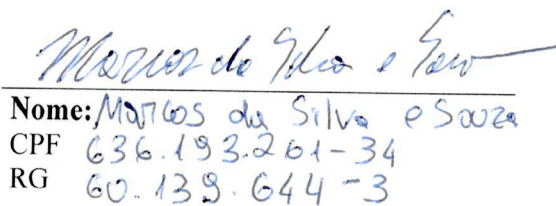 Marcos da Silva e Souza
Nome: Marcos da Silva e Souza
CPF 636.193.261-34
RG 60.139.644-3